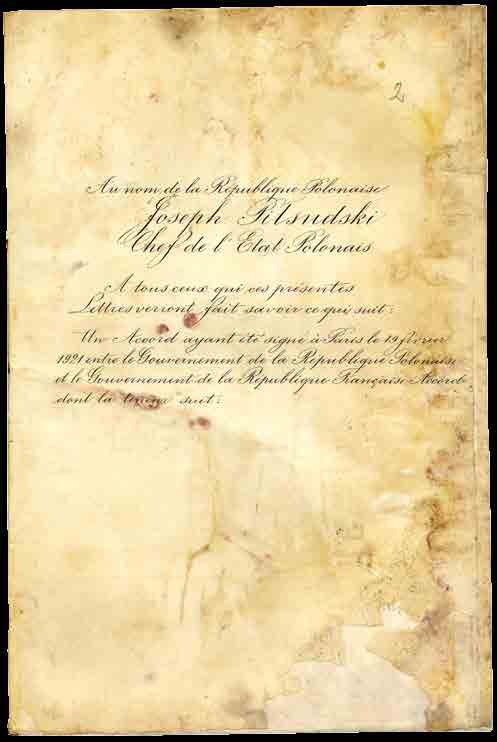 2
Au nom de la République Polonaise
Joseph Pilsudski
Chef de l'Etat Polonais
A tous ceux qui ces présentes
Lettres verront fait savoir ce qui suit:
Un Accord ayant été signé à Paris le 19 février
1921 entre le Gouvernement de la République Polonaise
et le Gouvernement de la République Française Accord
dont la teneur suit: